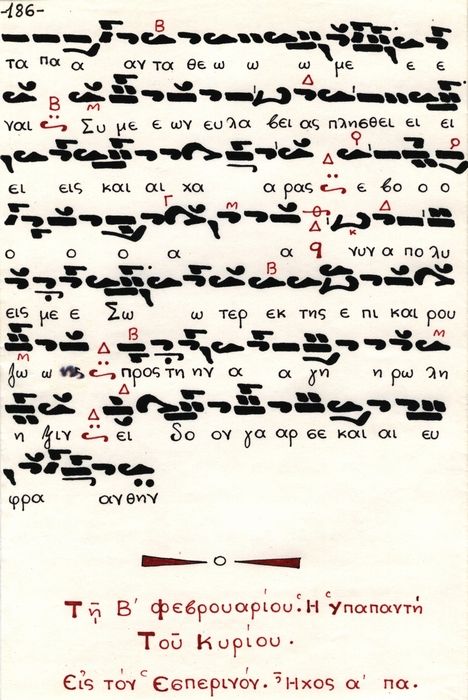 -186-
τα πα α αν τα θε ω ω ω με ε ε
ναι Συ με ε ων ευ λα βει ας πλησθει ει ει
ει εις και αι χα α ρας ε βο ο ο
ο ο ο α α νυν α πο λυ
εις με ε Σω ω τερ εκ της ε πι και ρου
ζω ω ης προς τη ην α α γη η ρω λη
η ξιν ει δο ον γα αρ σε και αι ευ
φρα αν θην
Τῇ Β' φεβρουαρίου: Ἡ Ὑπαπαντή
Τοῦ Κυρίου.
Εἰς τόν Ἑσπερινόν. Ἦχος α' πα.